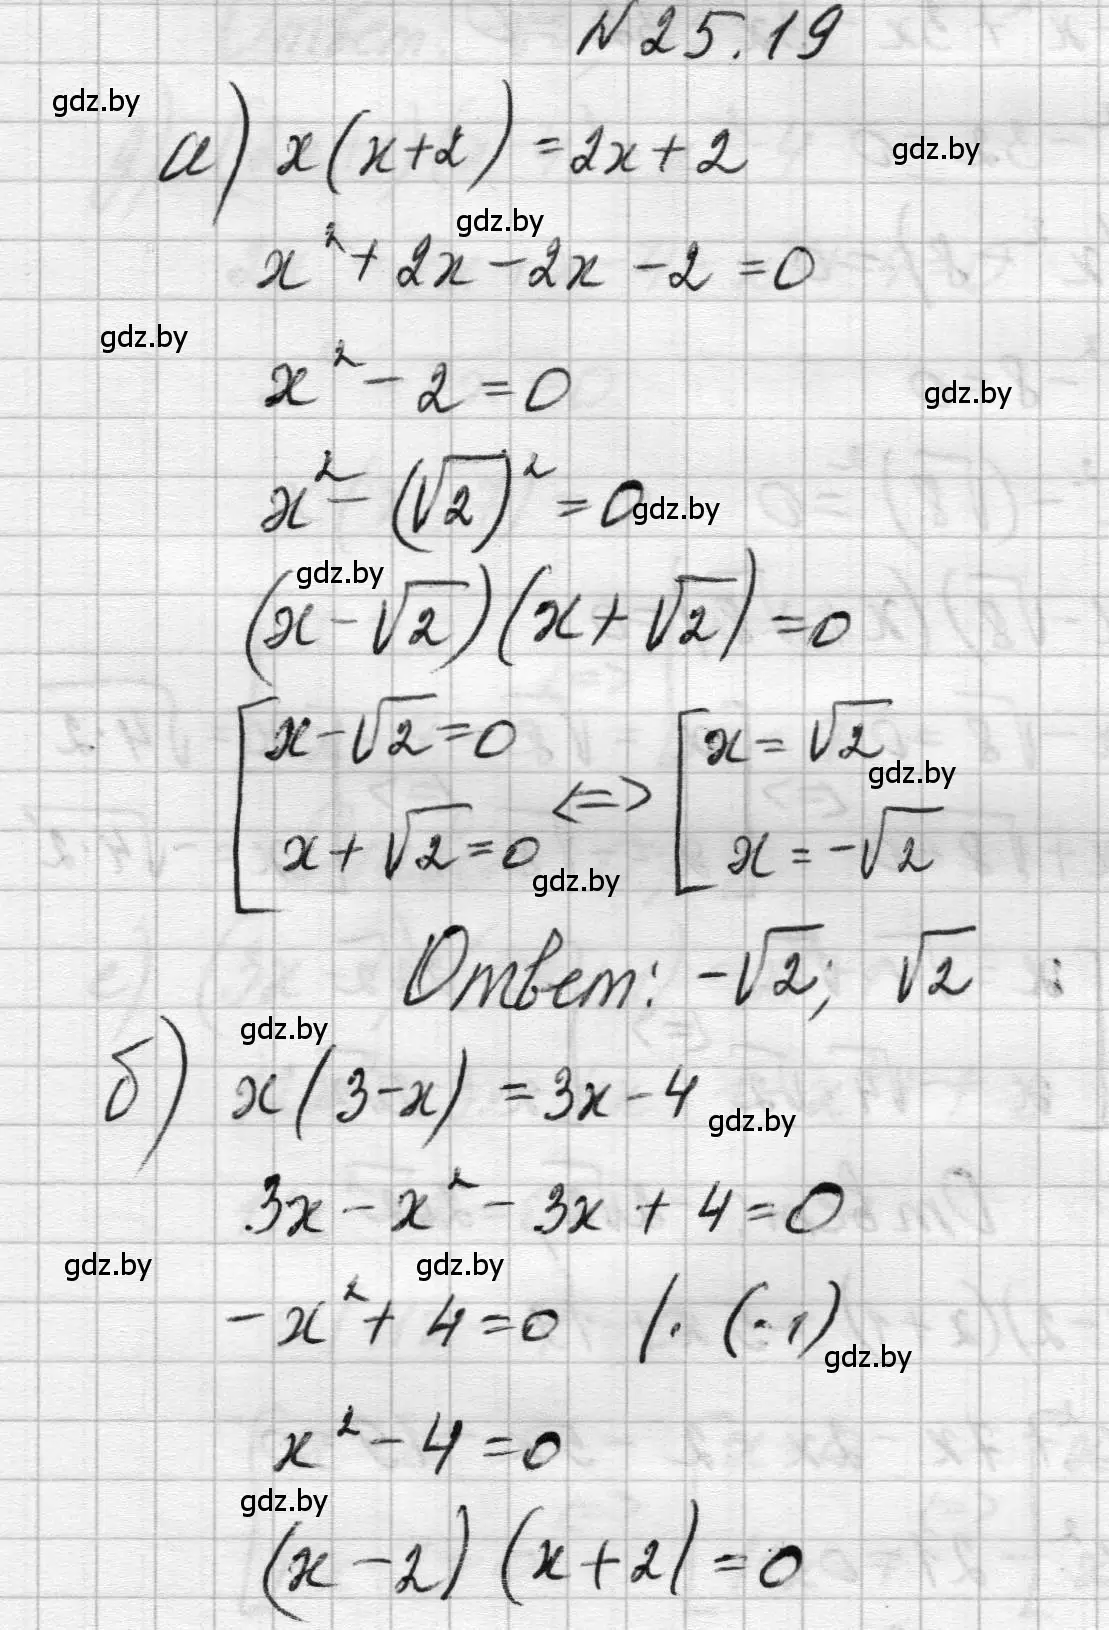 N 25.19
gdz.by
а) x(x+2) = 2x + 2
gdz.by
gdz.by
x² + 2x - 2x - 2 = 0
gdz.by
x² - 2 = 0
gdz.by
x² - (√2)² = 0
gdz.by
gdz.by
(x - √2)(x + √2) = 0
[x - √2 = 0 <=> [x = √2
gdz.by
x + √2 = 0 x = -√2
gdz.by
Ответ: -√2; √2
gdz.by
б) x(3-x) = 3x - 4
gdz.by
3x - x² - 3x + 4 = 0
gdz.by gdz.by
-x² + 4 = 0 |· (-1)
gdz.by
x² - 4 = 0
gdz.by
(x - 2)(x + 2) = 0